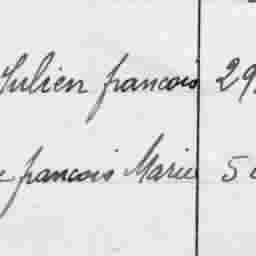 Julien francois 29
francois Marie 5